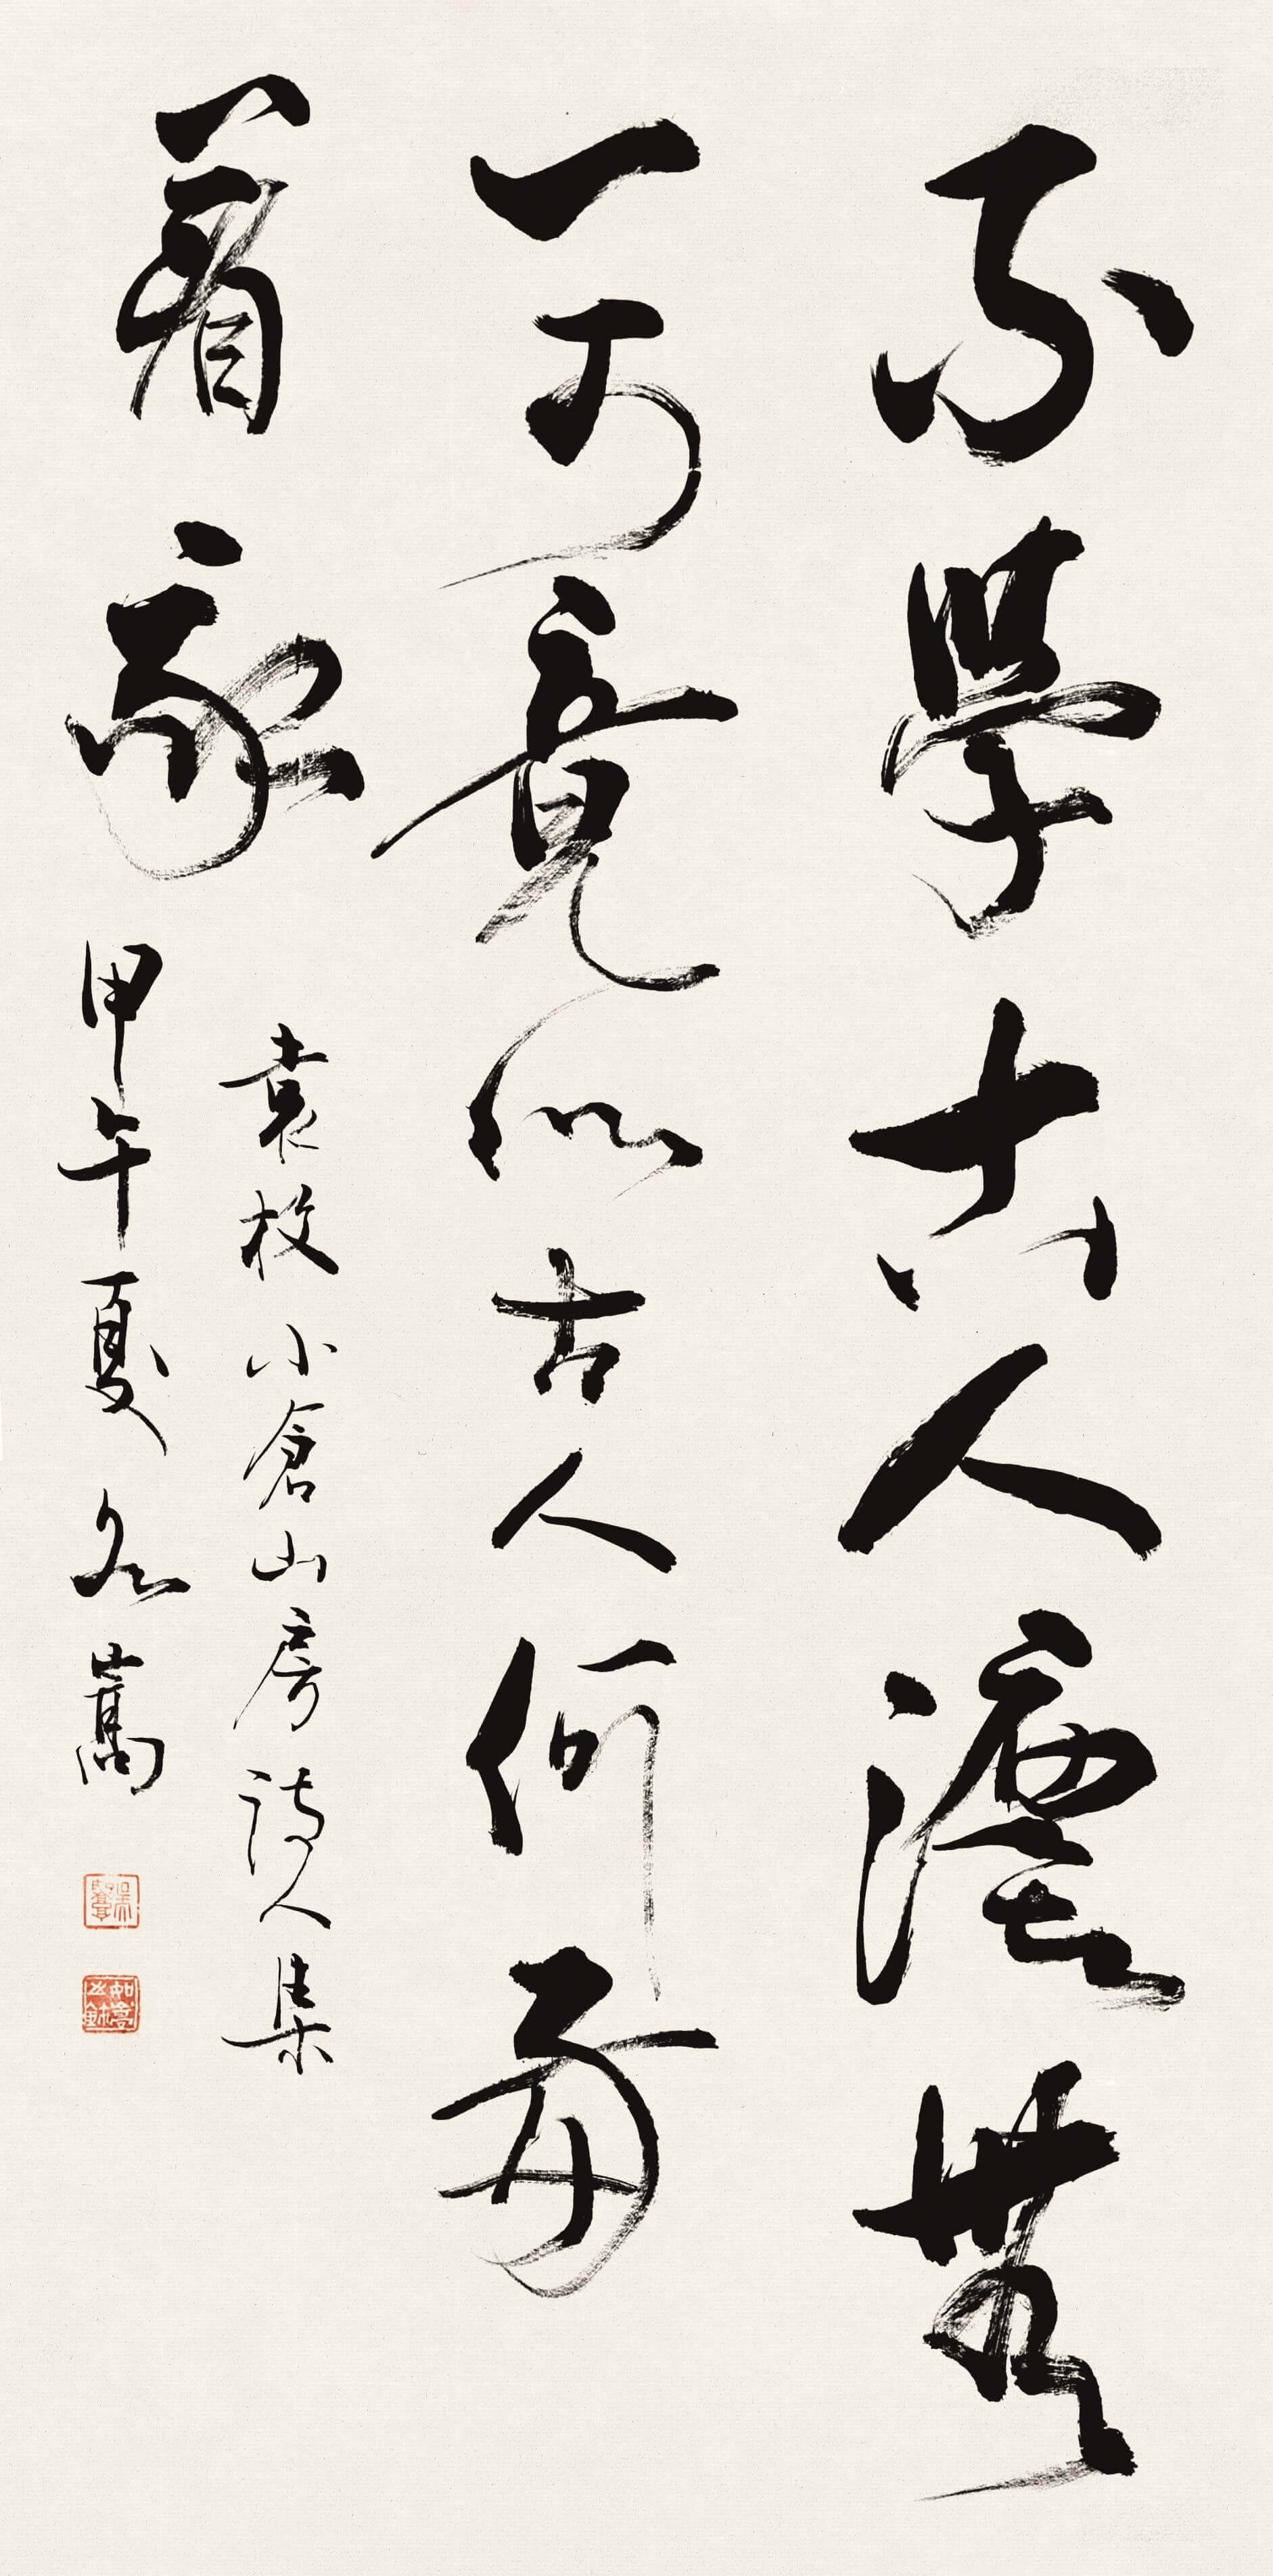 不學古人灋無
一可竟似古人何處
着我
袁枚小倉山房詩人集
甲午夏